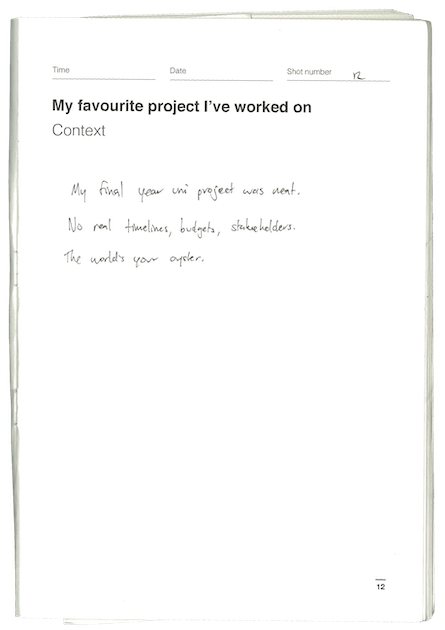 Time Date Shot number 12
My favourite project I've worked on
Context
My final year uni project was neat.
No real timelines, budgets, stakeholders.
The world's your oyster.
12